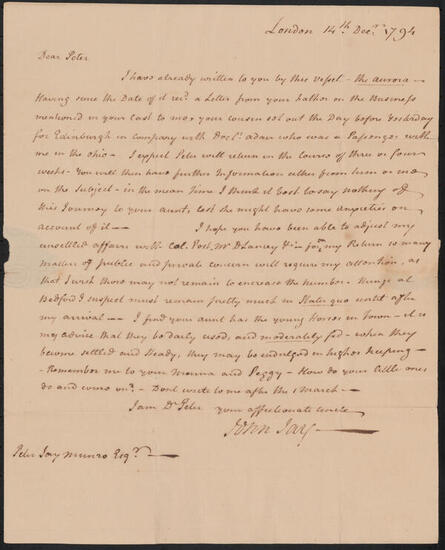 London 14th. Decr. 1794
Dear Peter
I have already written to you by this vessel - the aurora -
Having since the Date of it recd. a Letter from your Father on the Business
mentiond in your last to me & your cousin set out the Day before Yesterday
for Edinburgh in company with Doctr. adair who was a Passenger with
me in the ohio - I expect Peter will return in the course of three or four
weeks - You will then have further Information either from him or me
on the Subject - in the mean Time I think it best to say nothing of
this Journey to your aunt, lest she might have some anxieties on
account of it —
I hope you have been able to adjust my
unsettled affairs with Col. Post, Mr. DLancey &c - for on my Return so many
matters of public and private concern will require my attention, as
that I wish those may not remain to encrease the number. Things at
Bedford I suspect must remain pretty much in Statu quo untill after
my arrival — I find your aunt has the young Horses in Town - it is
my advice that they be daily used, and moderately fed - when they
become settled and steady, they may be indulged in higher keeping -
- Remember me to your Mama and Peggy - How do your little ones
do and come on? - Dont write to me after the 1 March -
I am Dr. Peter your affectionate uncle
John Jay —
Peter Jay Munro Esqr. —